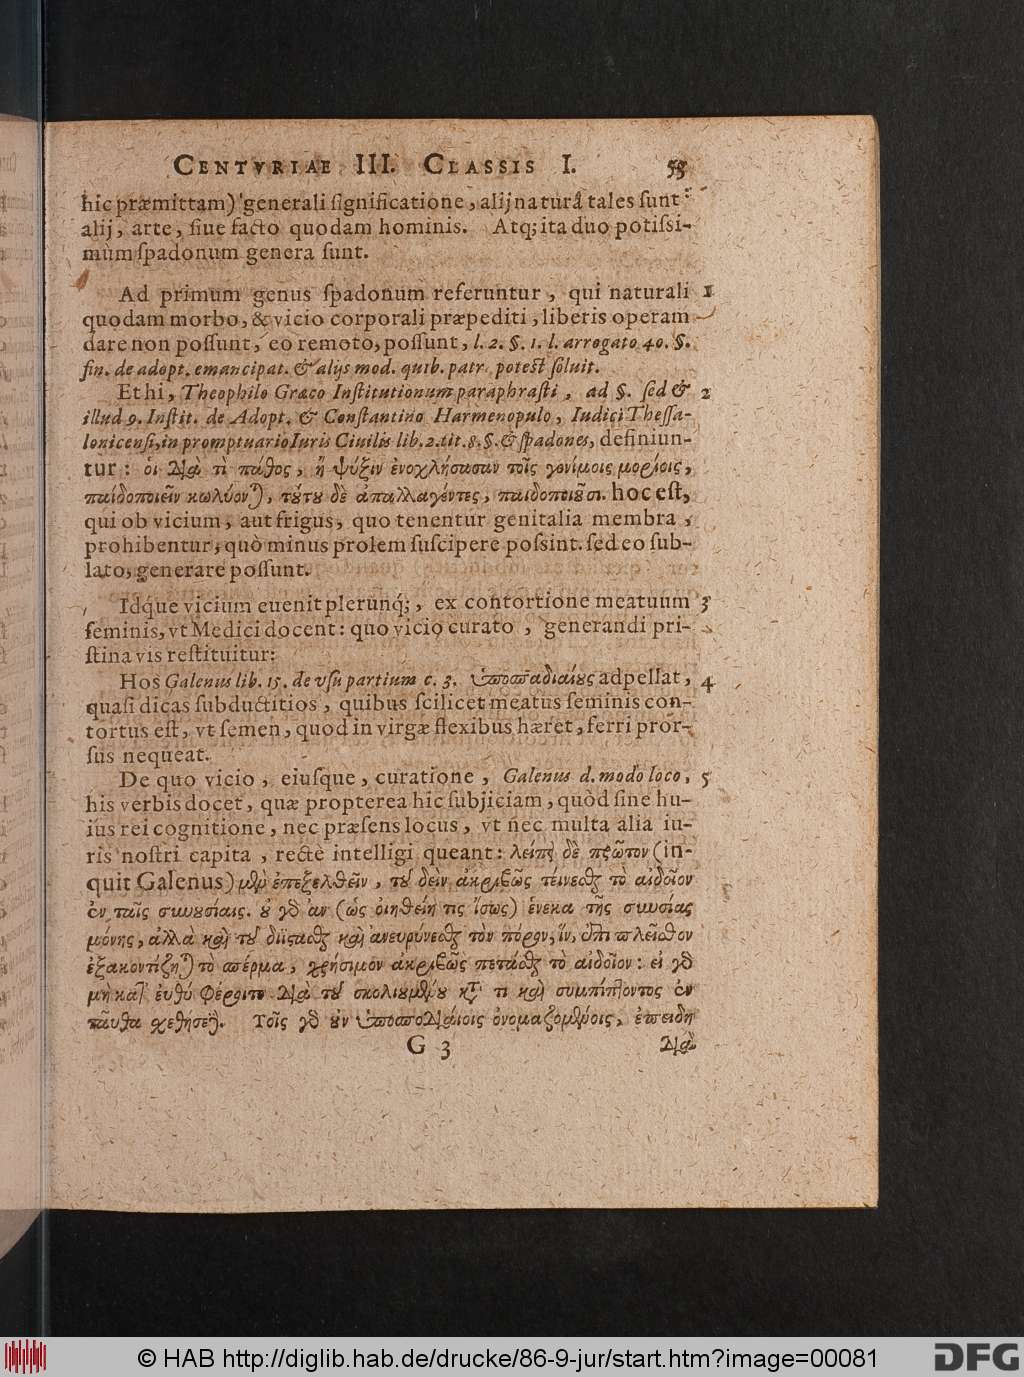 CENTVRIAE III. CLASSIS I. 53
hic præmittam) generali ſignificatione, alij naturâ tales ſunt:
alij, arte, ſiue facto quodam hominis. Atq; ita duo potiſsi-
mùm ſpadonum genera ſunt.
Ad primum genus ſpadonum referuntur, qui naturali 1
quodam morbo, & vicio corporali præpediti, liberis operam
dare non poſſunt, eo remoto, poſſunt, l. 2. §. 1. l. arrogato 40. §.
fin. de adopt. emancipat. & alijs mod. quib. patr. poteſt ſoluit.
Et hi, Theophilo Græco Inſtitutionum paraphraſti, ad §. ſed & 2
illud 9. Inſtit. de Adopt. & Conſtantino Harmenopulo, Iudici Theſſa-
lonicenſi, in promptuario Iuris Ciuilis lib. 2. tit. 8. §. & ſpadones, definiun-
tur: οἱ διὰ τὶ πάθος, ἢ ψύξιν ἐνοχλήσασαν τοῖς γονίμοις μορίοις,
παιδοποιεῖν κωλύονται, τούτου δὲ ἀπαλλαγέντες, παιδοποιοῦσι. hoc eſt,
qui ob vicium, aut frigus, quo tenentur genitalia membra,
prohibentur, quò minus prolem ſuſcipere poſsint. ſed eo ſub-
lato, generare poſſunt.
Idq́ue vicium euenit plerunq́;, ex contortione meatuum 3
ſeminis, vt Medici docent: quo vicio curato, generandi pri-
ſtina vis reſtituitur:
Hos Galenus lib. 15. de vſu partium c. 3. ὑποσπαδιαίους adpellat, 4
quaſi dicas ſubductitios, quibus ſcilicet meatus ſeminis con-
tortus eſt, vt ſemen, quod in virgæ flexibus hæret, ferri pror-
ſus nequeat.
De quo vicio, eiuſque, curatione, Galenus d. modo loco, 5
his verbis docet, quæ propterea hic ſubjiciam, quòd ſine hu-
ius rei cognitione, nec præſens locus, vt nec multa alia iu-
ris noſtri capita, rectè intelligi queant: λείπει δὲ πρῶτον (in-
quit Galenus) μὲν ἐπεξελθεῖν, τοῦ δεῖν ἀκριβῶς τείνεσθαι τὸ αἰδοῖον
ἐν ταῖς συνουσίαις. οὐ γὰρ ἂν (ὡς οἰηθείη τις ἴσως) ἕνεκα τῆς συνουσίας
μόνης, ἀλλὰ καὶ τοῦ διΐστασθαι καὶ ἀνευρύνεσθαι τὸν πόρον, ἵν, ἐπὶ πλεῖσθον
ἐξακοντίζηται τὸ σπέρμα, χρήσιμον ἀκριβῶς πετάσθαι τὸ αἰδοῖον: εἰ γὰρ
μὴ κατ εὐθύ φέροιτο διὰ τοῦ σκολιουμένου κατὰ τι καὶ συμπίπτοντος ἐν
ταῦθα σχεθήσεται. Τοῖς γὰρ οὖν ὑποσποδιαίοις ὀνομαζομένοις, ἐπειδὴ
G 3 διὰ
© HAB http://diglib.hab.de/drucke/86-9-jur/start.htm?image=00081 DFG